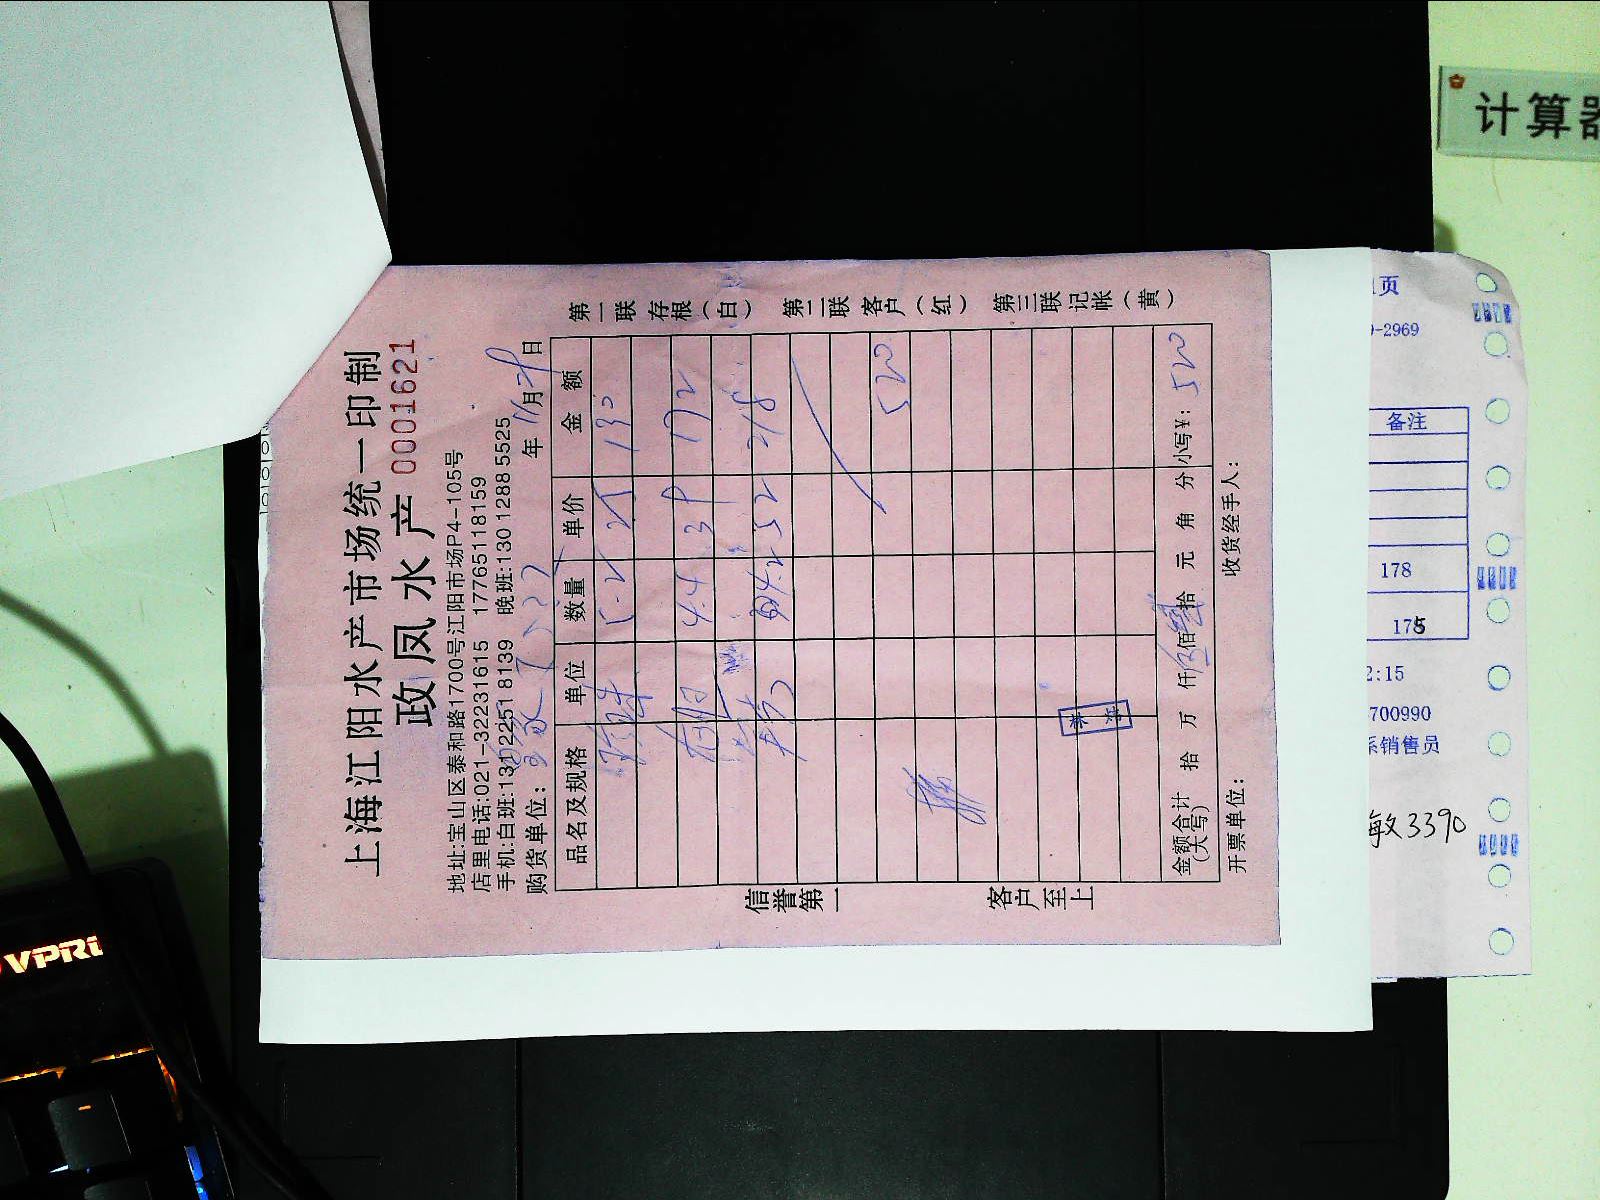 上海江阳水产市场统一印制
政凤水产 0001621
地址:宝山区泰和路1700号江阳市场P4-105号
店里电话:021-32231615 17765118159
手机:白班:131 2251 8139 晚班:130 1288 5525
购货单位: 年 11月29日
品名及规格 单位 数量 单价 金额
5.2 25 130
4.4 39 172
4.2 52 218
520
金额合计(大写) 拾 万 仟 伍佰 拾 元 角 分 小写¥: 520
开票单位: 收货经手人:
第一联 存根(白) 第二联 客户(红) 第三联 记帐(黄)
信誉第一 客户至上
计算器
页
-2969
备注
178
175
2:15
700990
系销售员
敏3390
VPRO